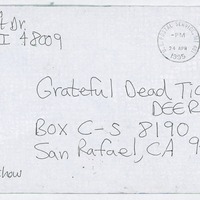 Dr.
I 48009
PM
1995
Grateful Dead Tic
DEER
Box C-S 8190
San Rafael, CA 9
how